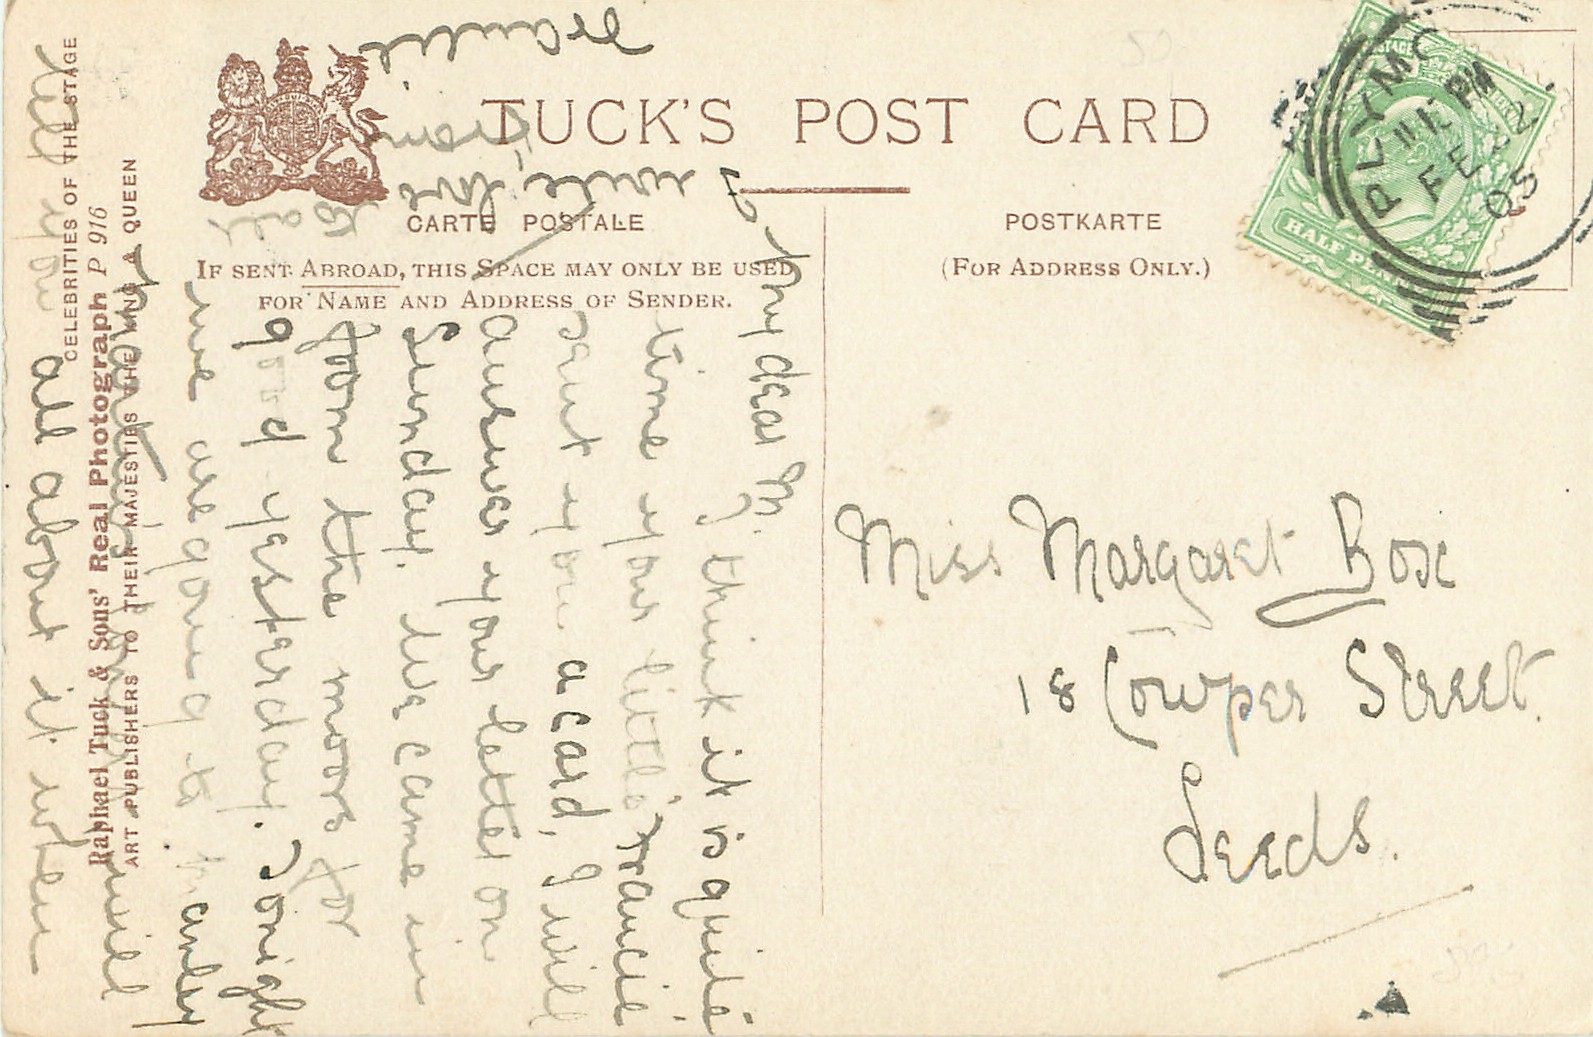 TUCK'S POST CARD
CARTE POSTALE
POSTKARTE
IF SENT ABROAD, THIS SPACE MAY ONLY BE USED
FOR NAME AND ADDRESS OF SENDER.
(FOR ADDRESS ONLY.)
CELEBRITIES OF THE STAGE
Raphael Tuck & Sons' Real Photograph P 916
ART PUBLISHERS TO THEIR MAJESTIES THE KING & QUEEN
POSTAGE
HALF PENNY
PLYMO
11.15 PM
FE 2
05
Miss Margaret Bose
18 Cowper Street.
Leeds.
My dear M.
I think it is quite
time your little Francie
sent you a card, I will
answer your letter on
Sunday. We came in
from the moors for
good yesterday. Tonight
we are going to
will
tell you all about it when
I write, love
from
Francie